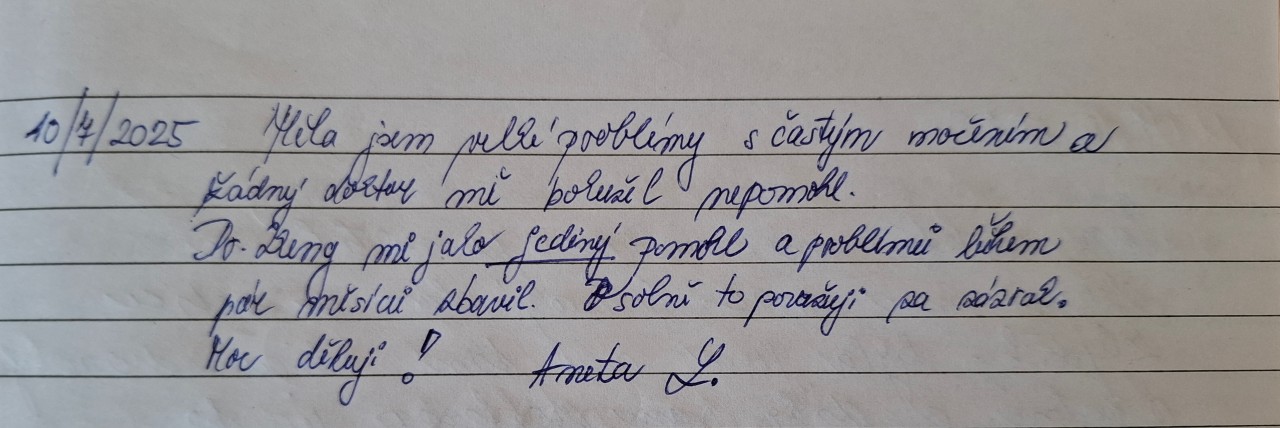 10/7/2025 Měla jsem velké problémy s častým močením a
žádný doktor mi bohužel nepomohl.
Dr. Zeng mi jako jediný pomohl a problémů během
pár měsíců zbavil. Osobně to považuji za zázrak.
Moc děkuji! Aneta L.